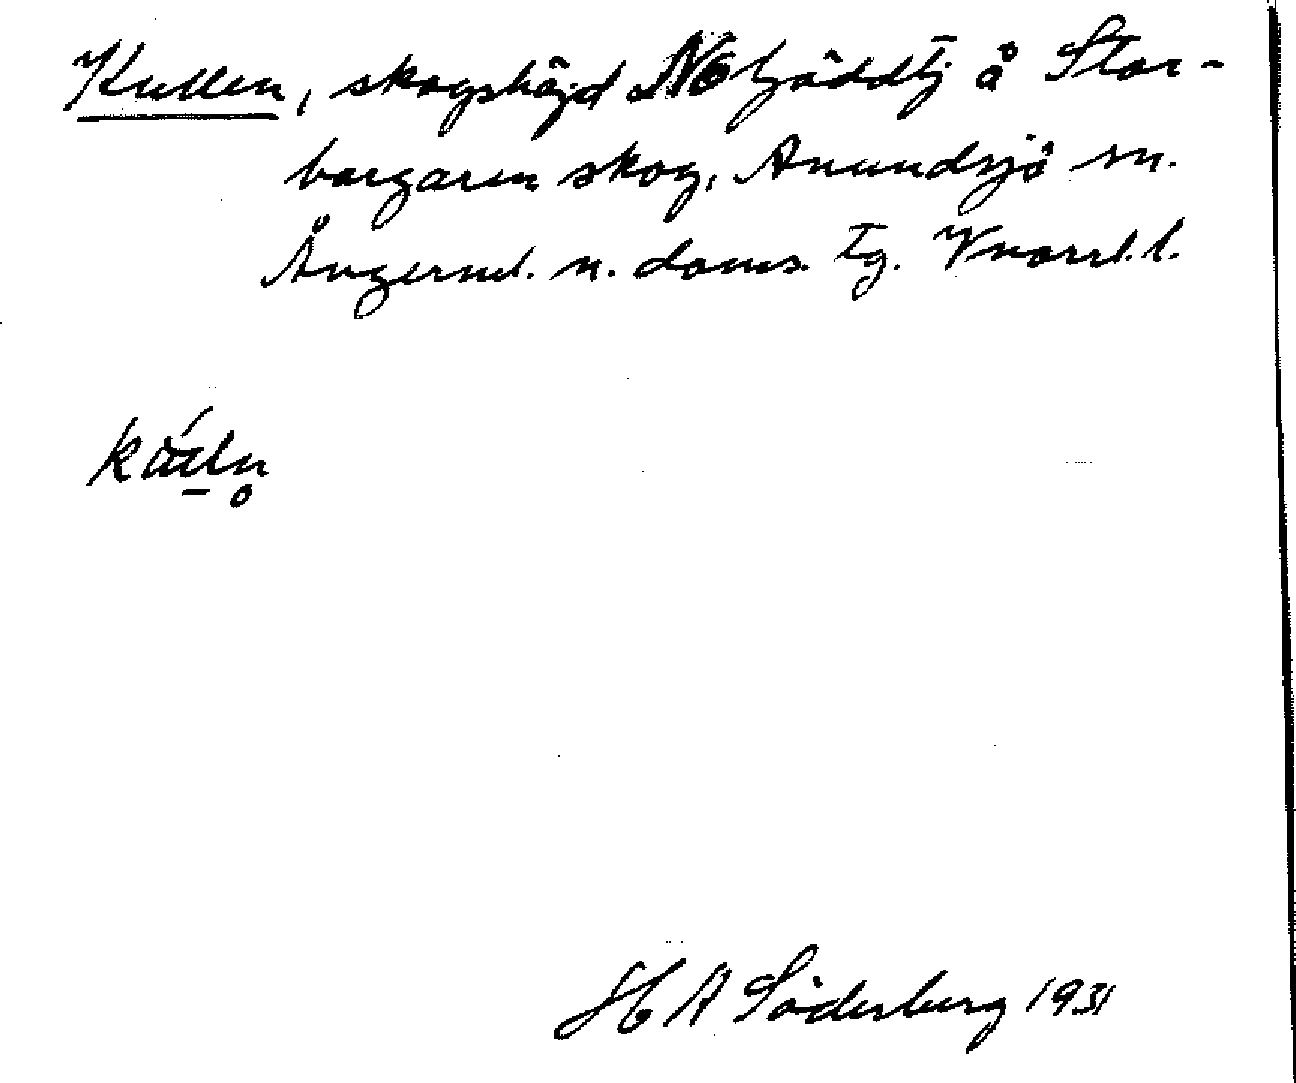 Kullen, skogshöjd NO Gäddtj å Stor-
bargaren skog, Anundsjö sn.
Ångerml. n. doms. Tg. Vnorrl. l.
H A Söderberg 1931